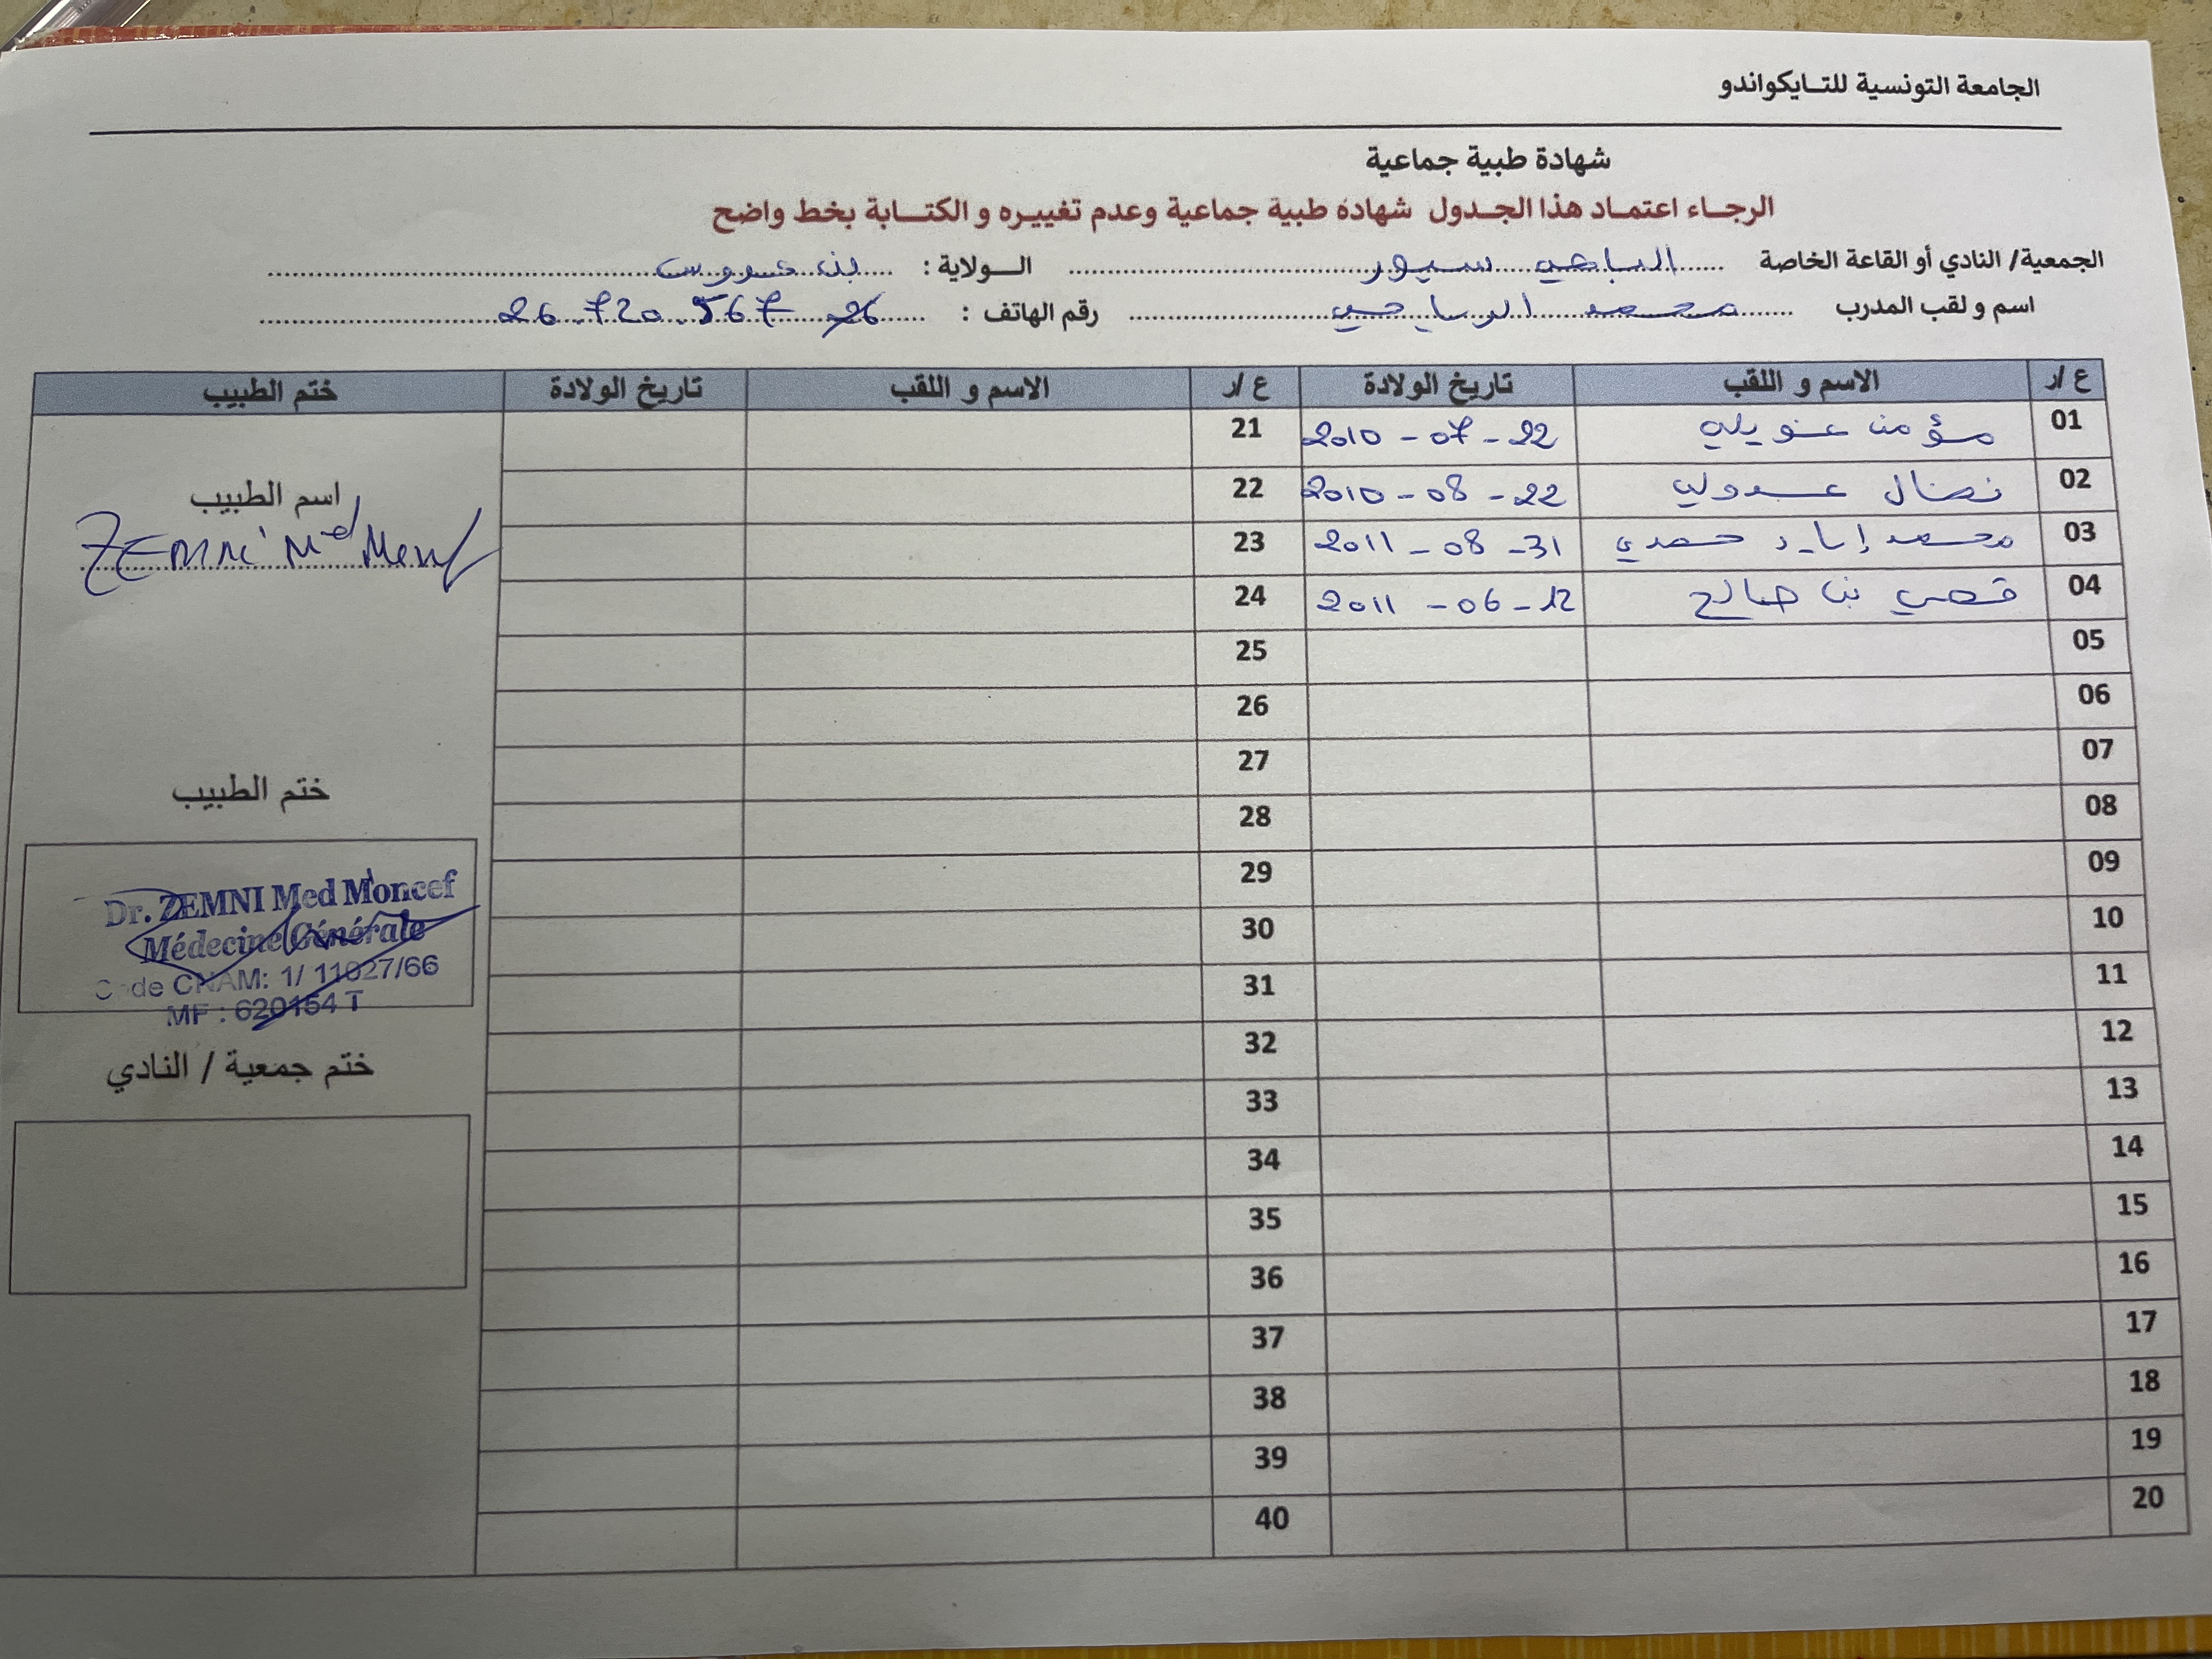 الجامعة التونسية للتايكواندو
شهادة طبية جماعية
الرجاء اعتماد هذا الجدول شهادة طبية جماعية وعدم تغييره و الكتابة بخط واضح
الجمعية/ النادي أو القاعة الخاصة الباجي سبور الولاية : بن عروس
اسم و لقب المدرب محمد الرياحي رقم الهاتف : 26.720.567
ع /ر الاسم و اللقب تاريخ الولادة ع /ر الاسم و اللقب تاريخ الولادة ختم الطبيب
01 مؤمن 2010 - 07 - 22 21
02 نضال عبدولي 2010 - 08 - 22 22
اسم الطبيب
03 محمد إياد حمدي 2011 - 08 - 31 23
ZEMNI Med Moncef
04 قصي بن صالح 2011 - 06 - 12 24
05 25
06 26
07 27
ختم الطبيب
08 28
09 29
Dr. ZEMNI Med Moncef
10 30
Médecine Générale
11 31
Code CNAM: 1/ 11027/66
MF : 620154 T
12 32
ختم جمعية / النادي
13 33
14 34
15 35
16 36
17 37
18 38
19 39
20 40